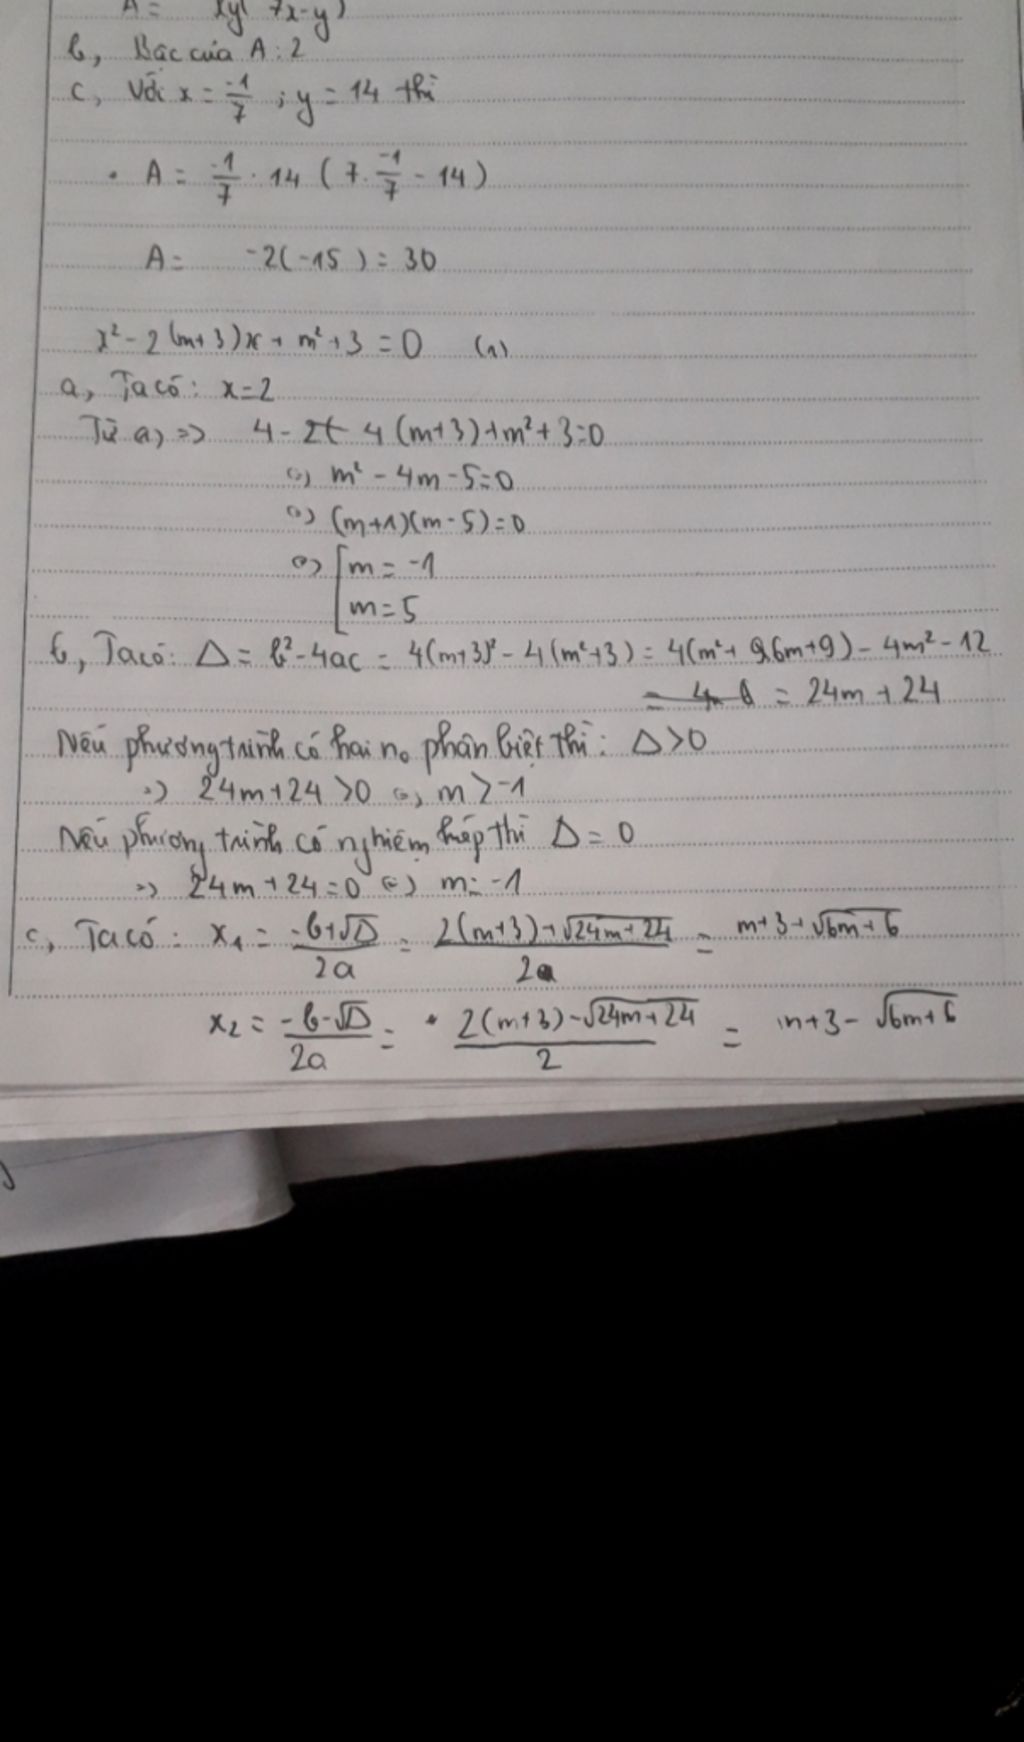 A = xy( 7x-y)
b, Bậc của A : 2
c, Với x = -1/7 ; y = 14 thì
A = -1/7 . 14 ( 7. -1/7 - 14 )
A = -2( -15 ) = 30
x² - 2(m+3)x + m² + 3 = 0 (1)
a, Ta có : x=2
Từ a) => 4 - 4(m+3)+m²+3=0
<=> m² - 4m - 5=0
<=> (m+1)(m-5)=0
<=> [ m = -1
m = 5
b, Ta có: Δ = b²-4ac = 4(m+3)² - 4(m²+3) = 4(m²+ 6m+9) - 4m² - 12
= 24m + 24
Nếu phương trình có hai no phân biệt thì : Δ>0
=> 24m+24 >0 <=> m > -1
Nếu phương trình có nghiệm kép thì Δ = 0
=> 24m + 24 = 0 <=> m = -1
c, Ta có : x₁ = (-b+√Δ)/2a = (2(m+3)+√(24m+24))/2 = m+3+√(6m+6)
x₂ = (-b-√Δ)/2a = (2(m+3)-√(24m+24))/2 = m+3 - √(6m+6)